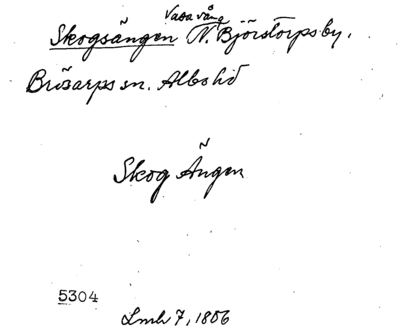 Vasavång
Skogsängen N. Björstorps by.
Brösarps sn. Albo hd
Skog Ängen
5304
Lmh 7, 1806